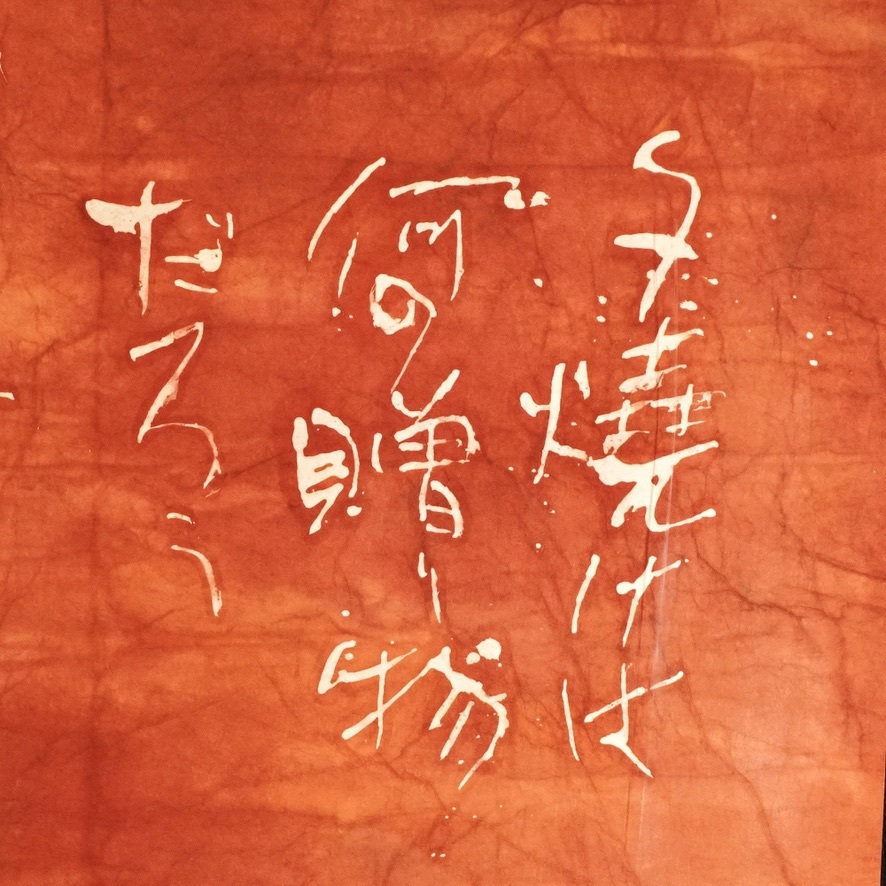 夕燒けは
何の贈り物
だろう